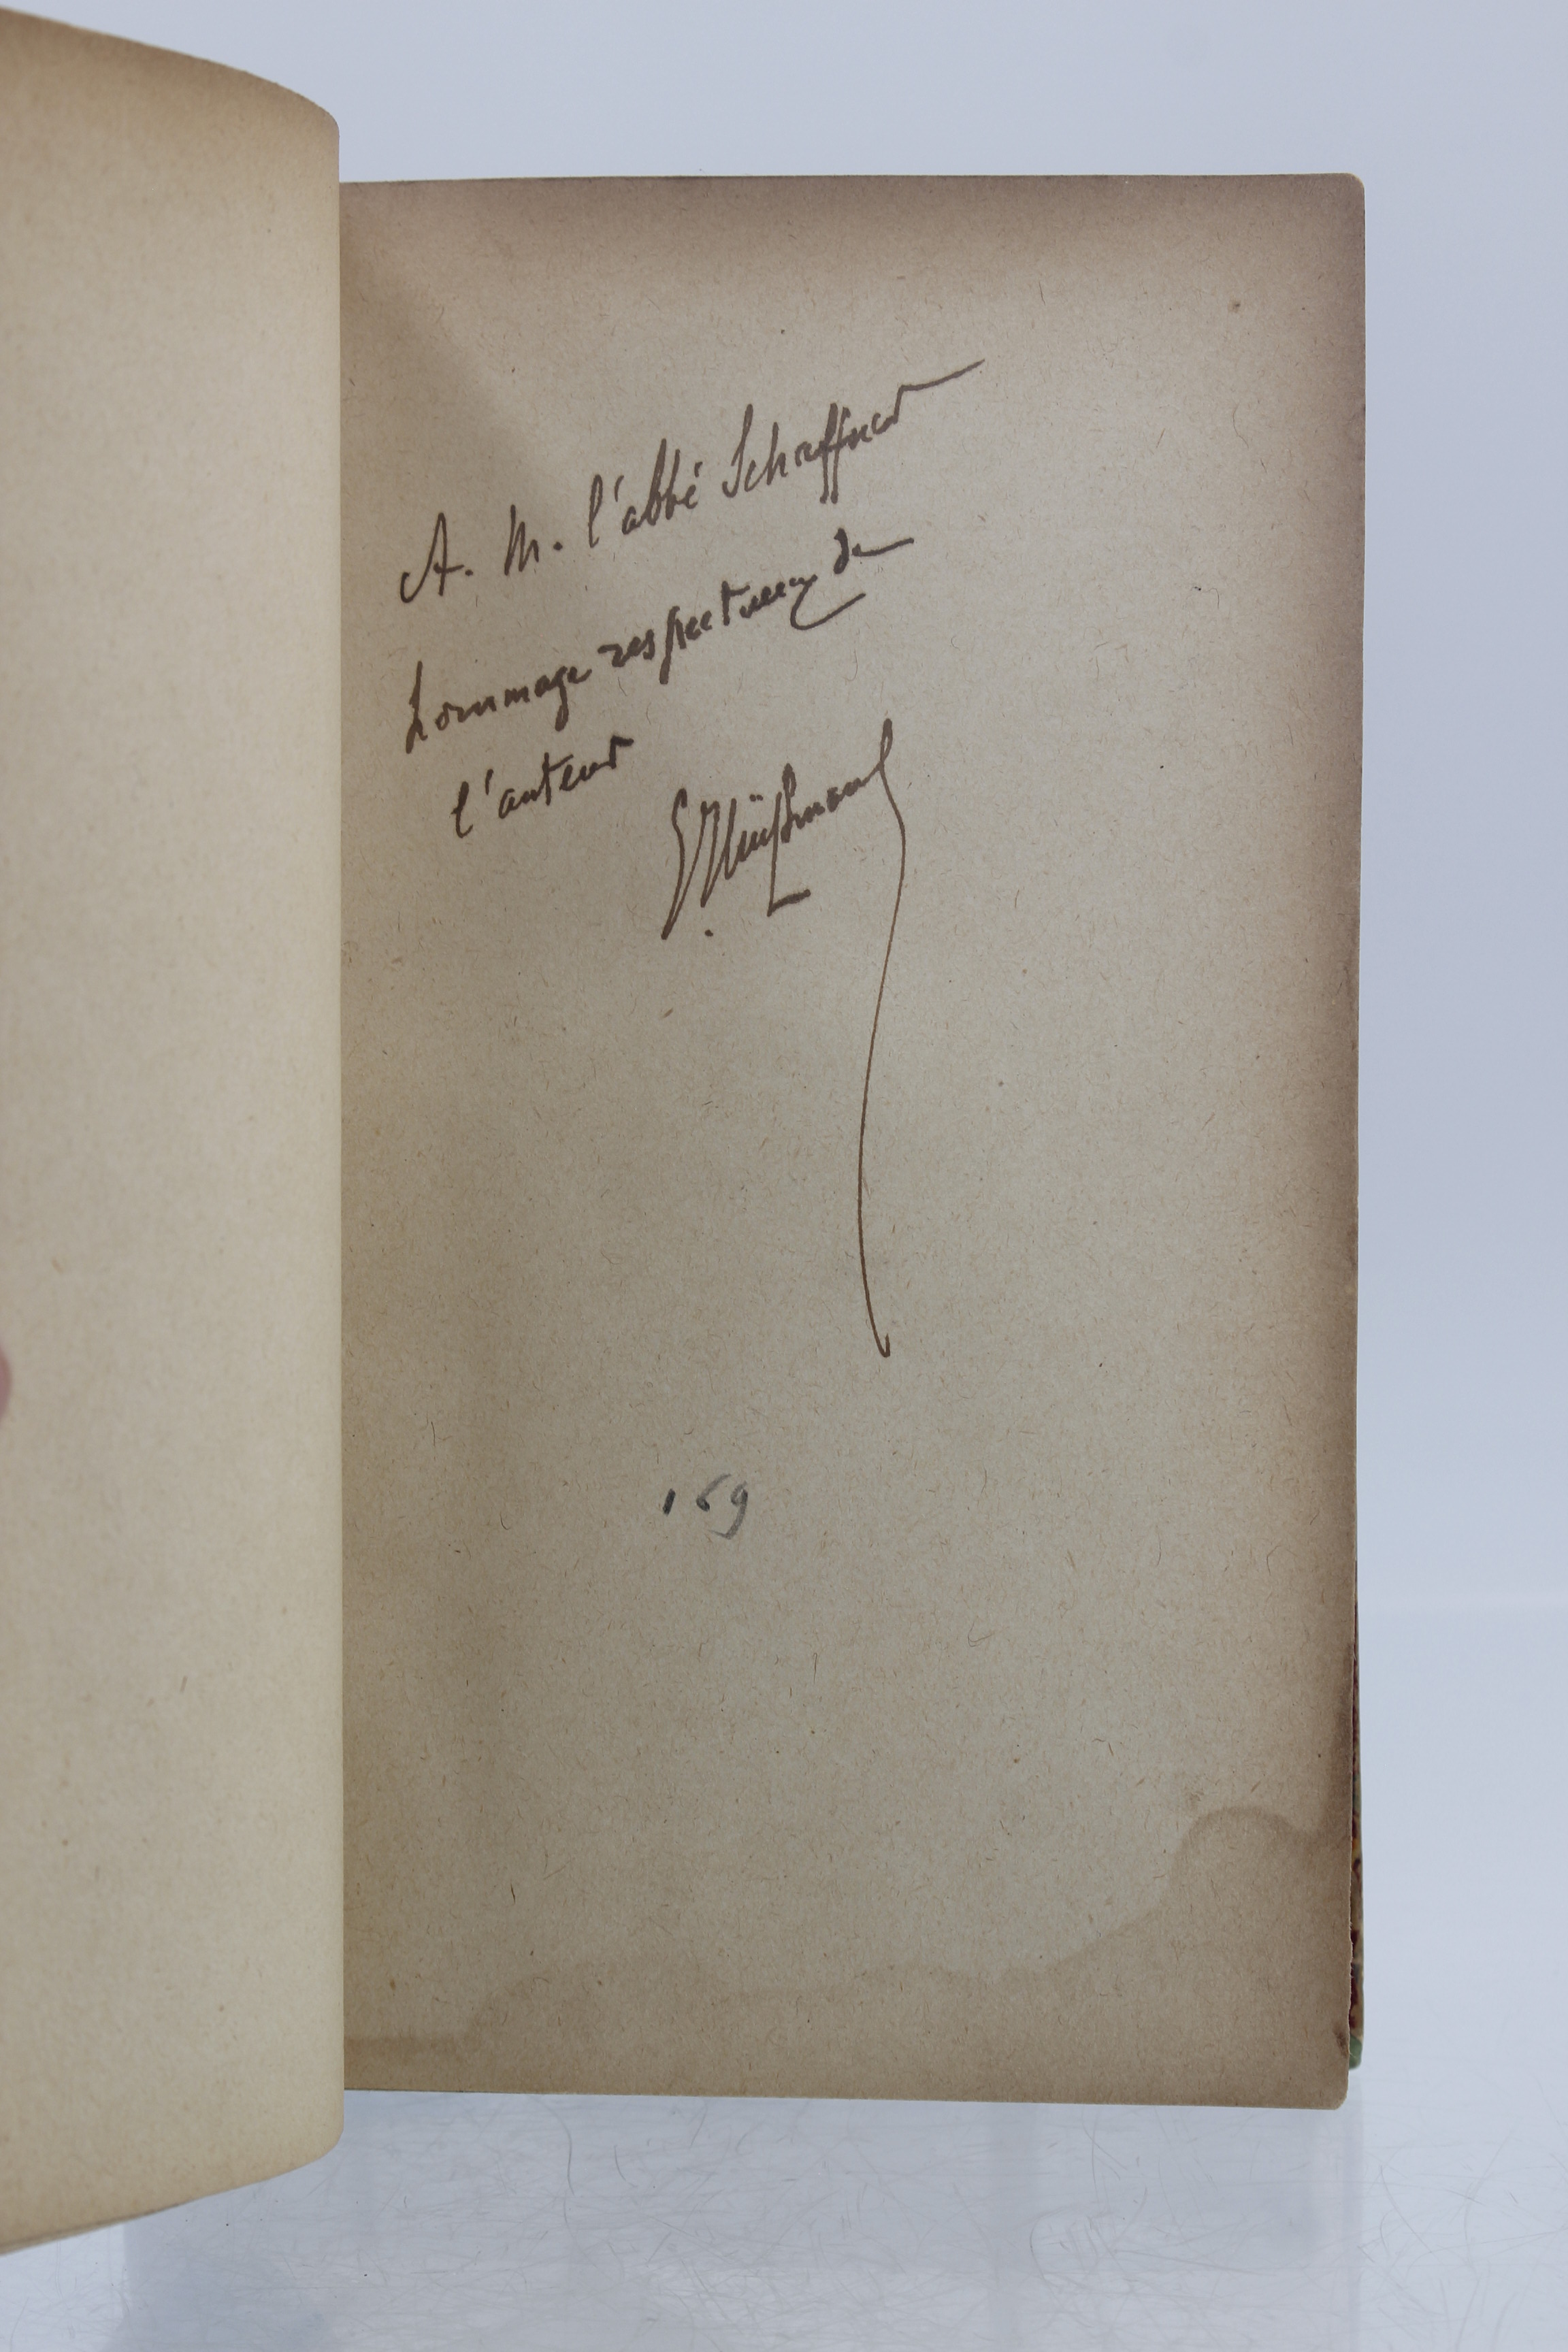 A. M. l'abbé Schaffner
hommage respectueux de
l'auteur
G. Huÿsmans
169